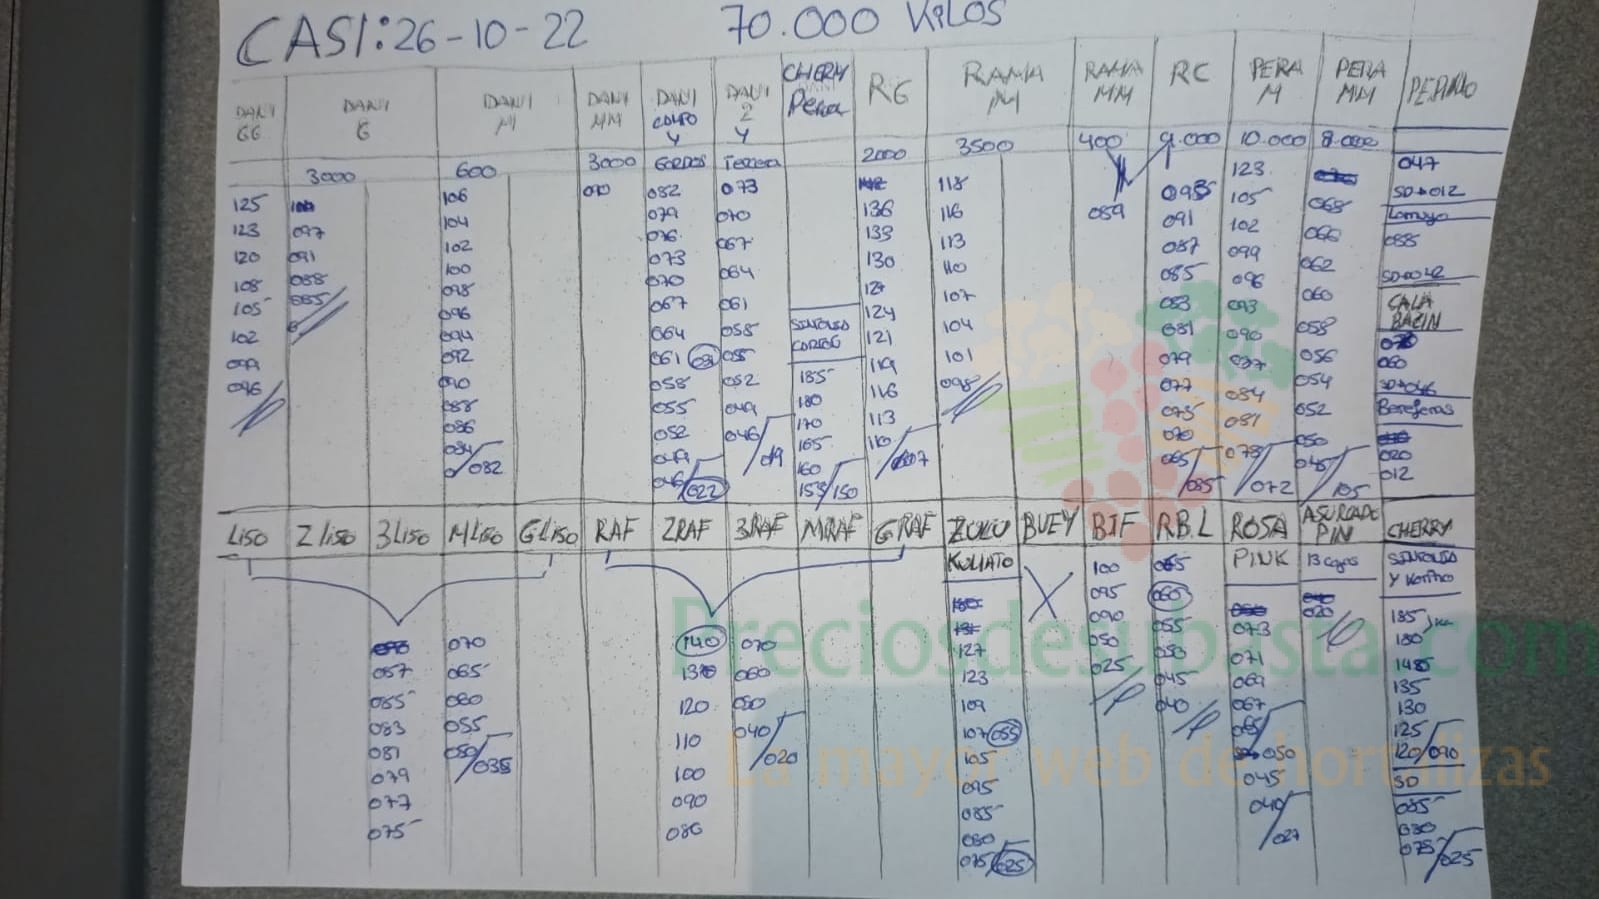 CASI: 26-10-22 70.000 KILOS
DANI GG DANI G DANI M DANI MM DANI COLPO Y DANI 2 Y CHERRY Pera RG RAMA M RAMA MM RC PERA M PERA MM PEPINO
3000 600 3000 GORDOS Tercera 2000 3500 400 9.000 10.000 8.000
125 123 120 108 105 102 099 096
097 091 088 085
106 104 102 100 098 096 094 092 090 088 086 084/082
070
082 079 076 073 070 067 064 061 058 055 052 049 046/022
073 070 067 064 061 058 055 052 049 046/019
SINTONIA CORTOG
185 180 170 165 160 155/150
136 133 130 127 124 121 119 116 113 110/107
118 116 113 110 107 104 101 098
089
095 091 087 085 083 081 079 077 075 070 065/035
123 105 102 099 096 093 090 087 084 081 078/072
068 066 062 060 058 056 054 052 050 045/105
047
SD+012
Lamuyo
055
SD+042
CALA BACIN
060
SD+046
Berenjenas
020
012
LISO 2 LISO 3 LISO M LISO G LISO RAF 2RAF 3RAF MIRAF G RAF ZULU BUEY BIF R.B.L ROSA ASURCADO PIN CHERRY
KUMATO PINK 13 cajas SINTONIA Y Kortno
057 085 083 081 079 077 075
070 065 060 055 050/035
140 130 120 110 100 090 086
070 060 050 040/020
127 123 109 107 055 105 095 085 080 075/025
100 095 090 050 025
065 060 055 050 045 040
073 071 069 067 065 050 045 040/027
020
185 180 1485 135 130 125 120/090
SD
085 080 075/025
Preciosdesubasta.com
La mayor web de hortalizas